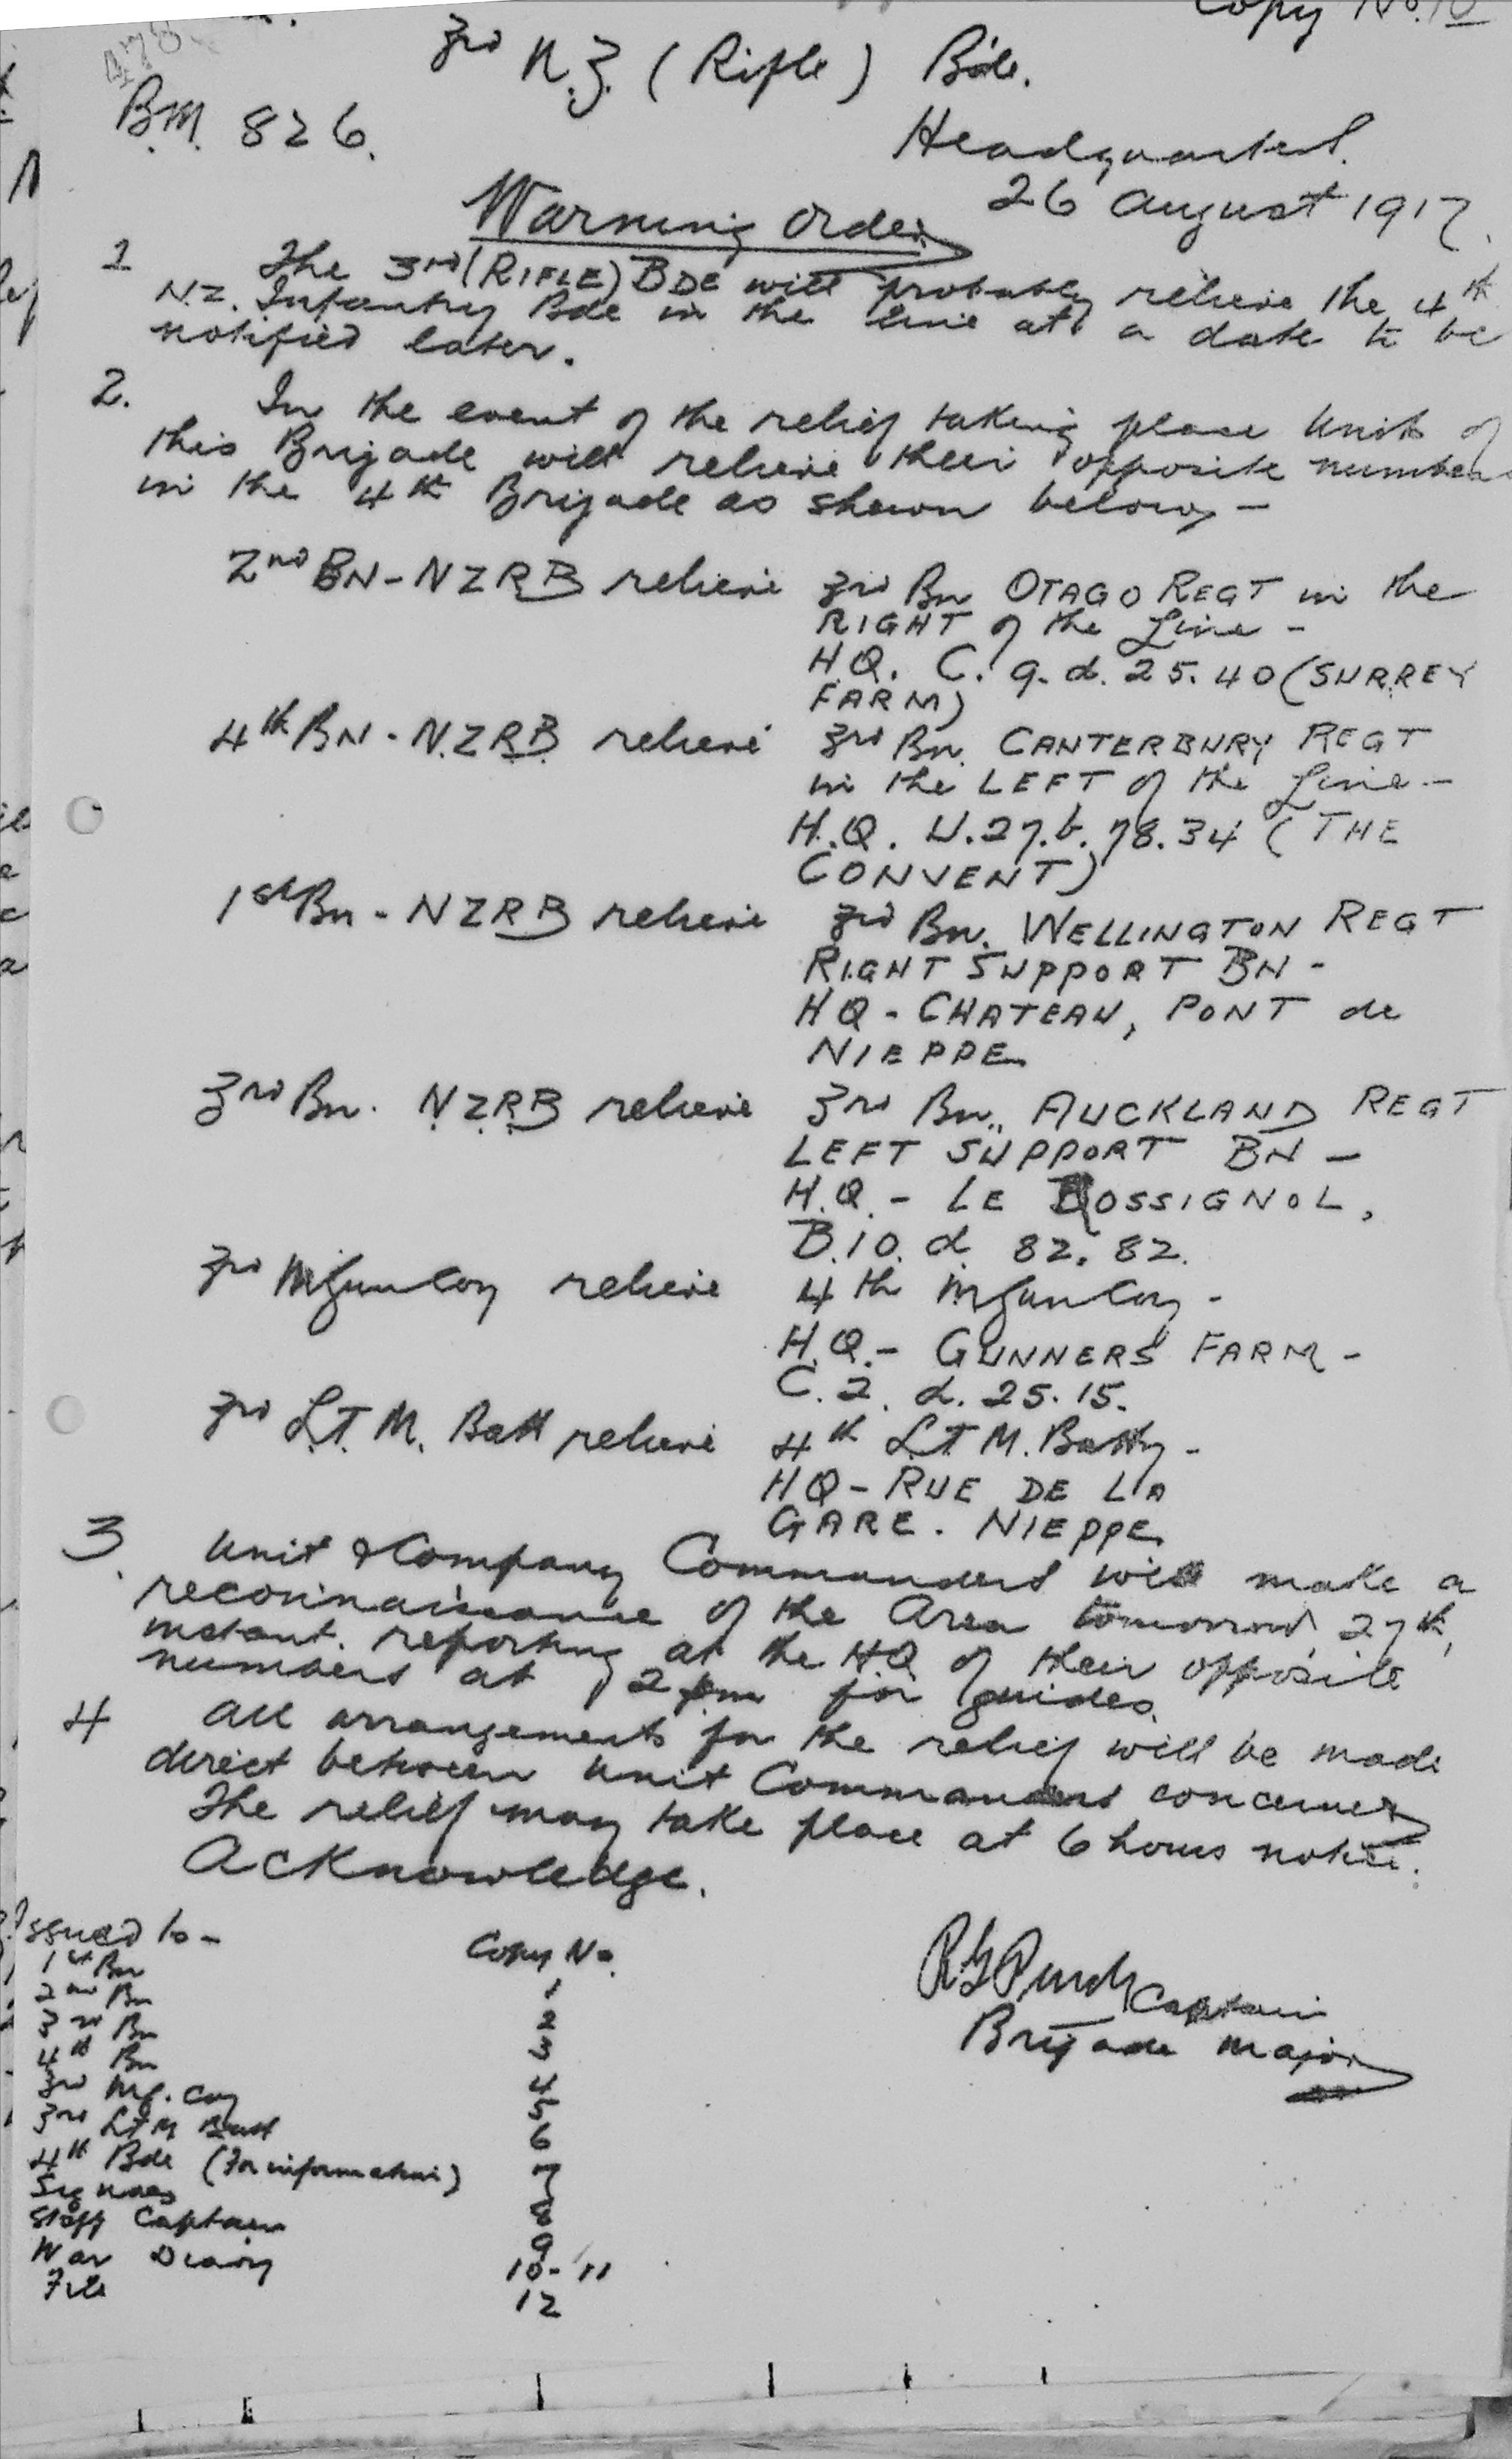 Copy No. 10
478
3rd N.Z. (Rifle) Bde.
B.M. 826.
Headquarters.
26 August 1917.
Warning Order
1 The 3rd (RIFLE) BDE will probably relieve the 4th
N.Z. Infantry Bde in the line at a date to be
notified later.
2. In the event of the relief taking place Units of
this Brigade will relieve their opposite numbers
in the 4th Brigade as shown below, -
2nd BN - NZRB relieve 3rd Bn OTAGO REGT in the
RIGHT of the Line -
H.Q. C. 9. d. 25. 40 (SURREY
FARM)
4th BN - N.Z.R.B. relieve 3rd Bn. CANTERBURY REGT
in the LEFT of the Line -
H.Q. U.27.b.78.34 (THE
CONVENT)
1st Bn - NZRB relieve 3rd Bn. WELLINGTON REGT
RIGHT SUPPORT BN -
HQ - CHATEAU, PONT de
NIEPPE
3rd Bn. N.Z.R.B relieve 3rd Bn., AUCKLAND REGT
LEFT SUPPORT BN -
H.Q. - LE ROSSIGNOL,
B.10. d 82. 82.
3rd MGunCoy relieve 4th MGunCoy -
H.Q. - GUNNERS FARM -
C. 2. d. 25. 15.
3rd L.T. M. Batt relieve 4th LT M. Batty -
HQ - RUE DE LA
GARE. NIEPPE
3. Unit & Company Commanders will make a
reconnaissance of the Area tomorrow, 27th,
instant. reporting at the H.Q of their opposite
numbers at 2 pm for guides.
4 All arrangements for the relief will be made
direct between Unit Commanders concerned
The relief may take place at 6 hours notice.
Acknowledge.
Issued to - Copy No.
1st Bn 1
2nd Bn 2
3rd Bn 3
4th Bn 4
3rd MG. Coy 5
3rd LTM Batt 6
4th Bde (For information) 7
Signals 8
Staff Captain 9
War Diary 10 - 11
File 12
Captain
Brigade Major